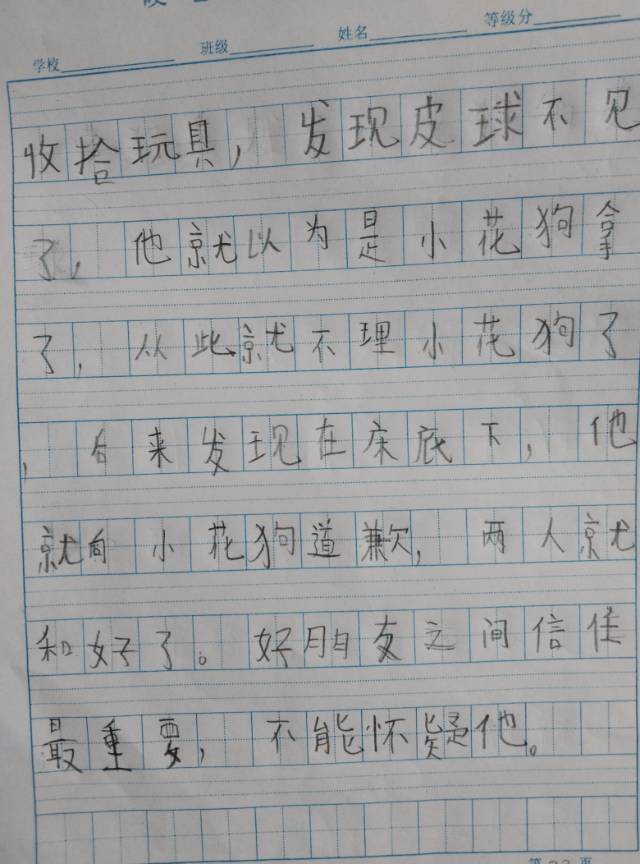 学校 班级 姓名 等级分
收拾玩具，发现皮球不见
了，他就以为是小花狗拿
了，从此就不理小花狗了
，后来发现在床底下，他
就向小花狗道歉，两人就
和好了。好朋友之间信任
最重要，不能怀疑他。